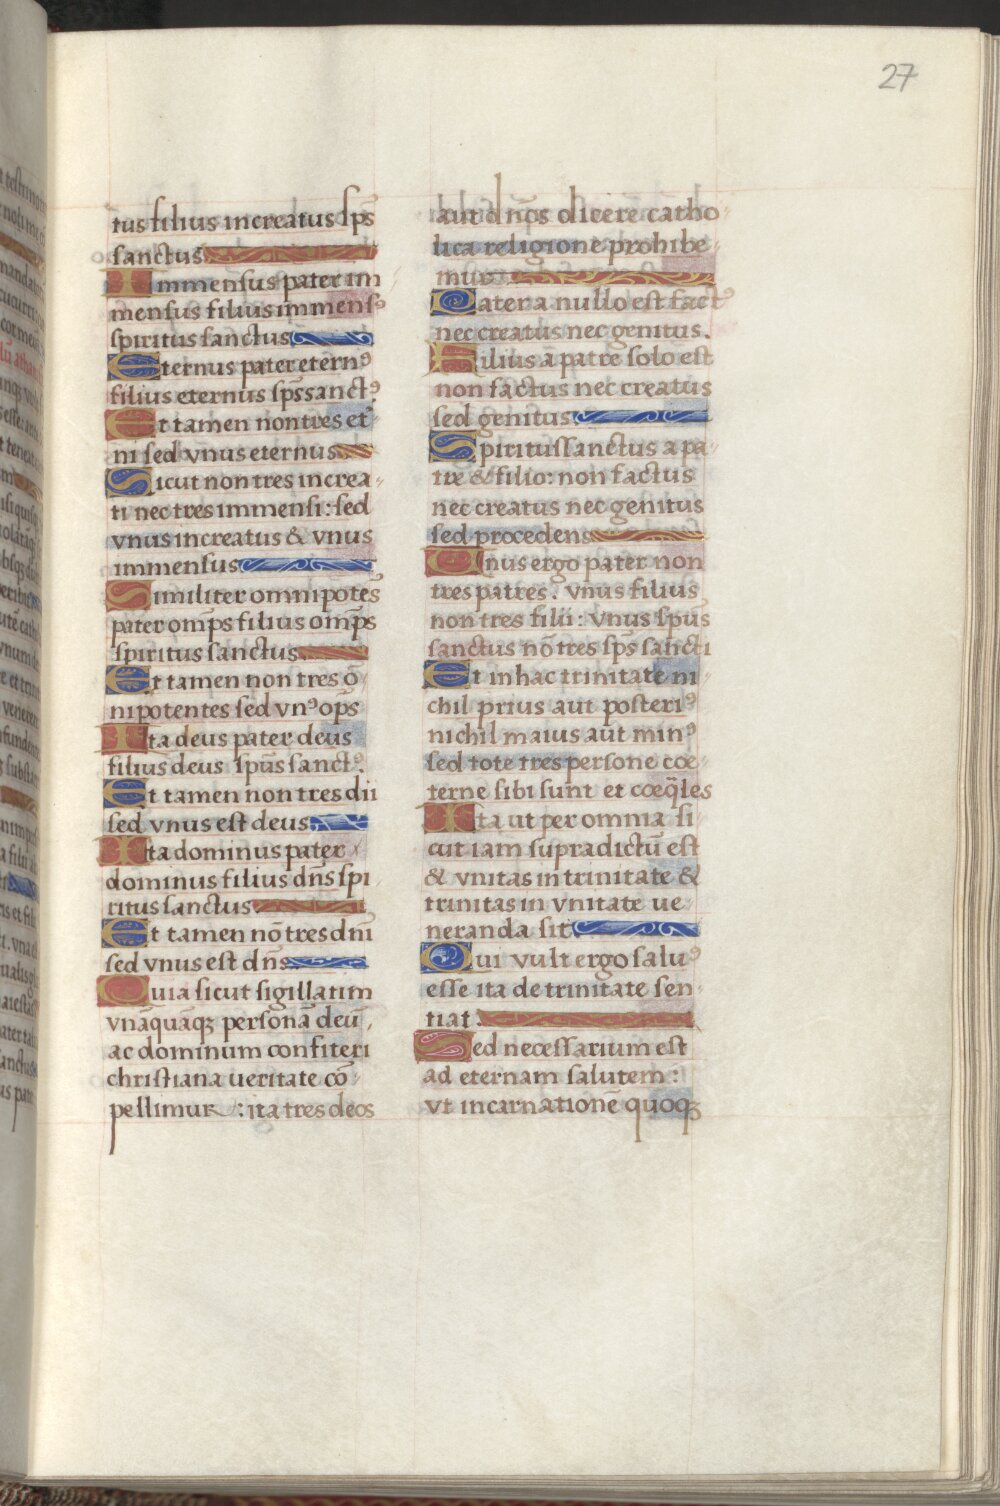 27
tus filius increatus sp̄s
sanctus
Immensus pater im
mensus filius immensꝰ
spiritus sanctus
Eternus pater eternꝰ
filius eternus sp̄s sanctꝰ
Et tamen non tres et̄
ni sed vnus eternus
Sicut non tres increa
ti nec tres immensi: sed
vnus increatus & vnus
immensus
Similiter omnipotēs
pater om̄ps filius om̄ps
spiritus sanctus
Et tamen non tres ō
nipotentes sed vnꝰ op̄s
Ita deus pater deus
filius deus sp̄us sanctꝰ.
Et tamen non tres dii
sed vnus est deus
Ita dominus pater
dominus filius dn̄s spi
ritus sanctus
Et tamen nō tres dn̄i
sed vnus est dn̄s
Quia sicut sigillatim
vnāquāqꝫ personā deū
ac dominum confiteri
christiana ueritate cō
pellimur : ita tres deos
aut dn̄os dicere catho
lica religione prohibe
mur
Pater a nullo est factꝰ
nec creatus nec genitus.
Filius a patre solo est
non factus nec creatus
sed genitus
Spiritus sanctus a pa
tre & filio: non factus
nec creatus nec genitus
sed procedens
Unus ergo pater non
tres patres. vnus filius
non tres filii: vnus sp̄us
sanctus nō tres sp̄s sancti
Et in hac trinitate ni
chil prius aut posteriꝰ
nichil maius aut minꝰ
sed tote tres persone coe
terne sibi sunt et coeq̄les
Ita ut per omnia si
cut iam supradictū est
& vnitas in trinitate &
trinitas in vnitate ue
neranda sit
Qui vult ergo saluꝰ
esse ita de trinitate sen
tiat.
Sed necessarium est
ad eternam salutem:
vt incarnationē quoqꝫ